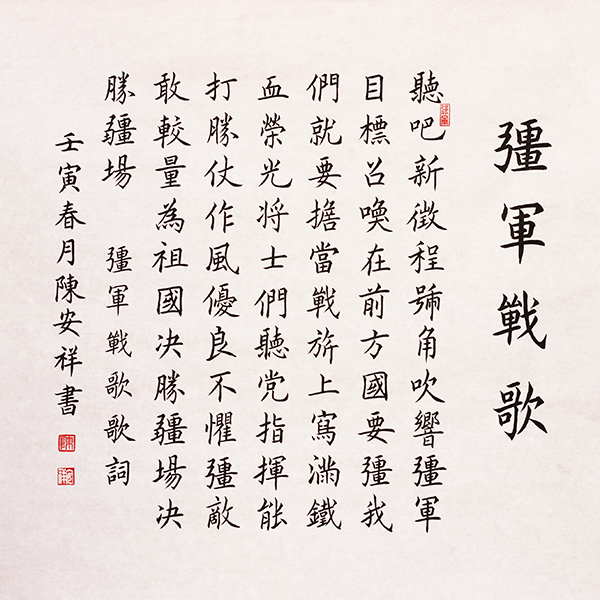 彊軍戰歌
聽吧新徵程號角吹響彊軍
目標召喚在前方國要彊我
們就要擔當戰旂上寫滿鐵
血榮光将士們聽党指揮能
打勝仗作風優良不懼彊敵
敢較量為祖國决勝疆場决
勝疆場 彊軍戰歌歌詞
壬寅春月陳安祥書